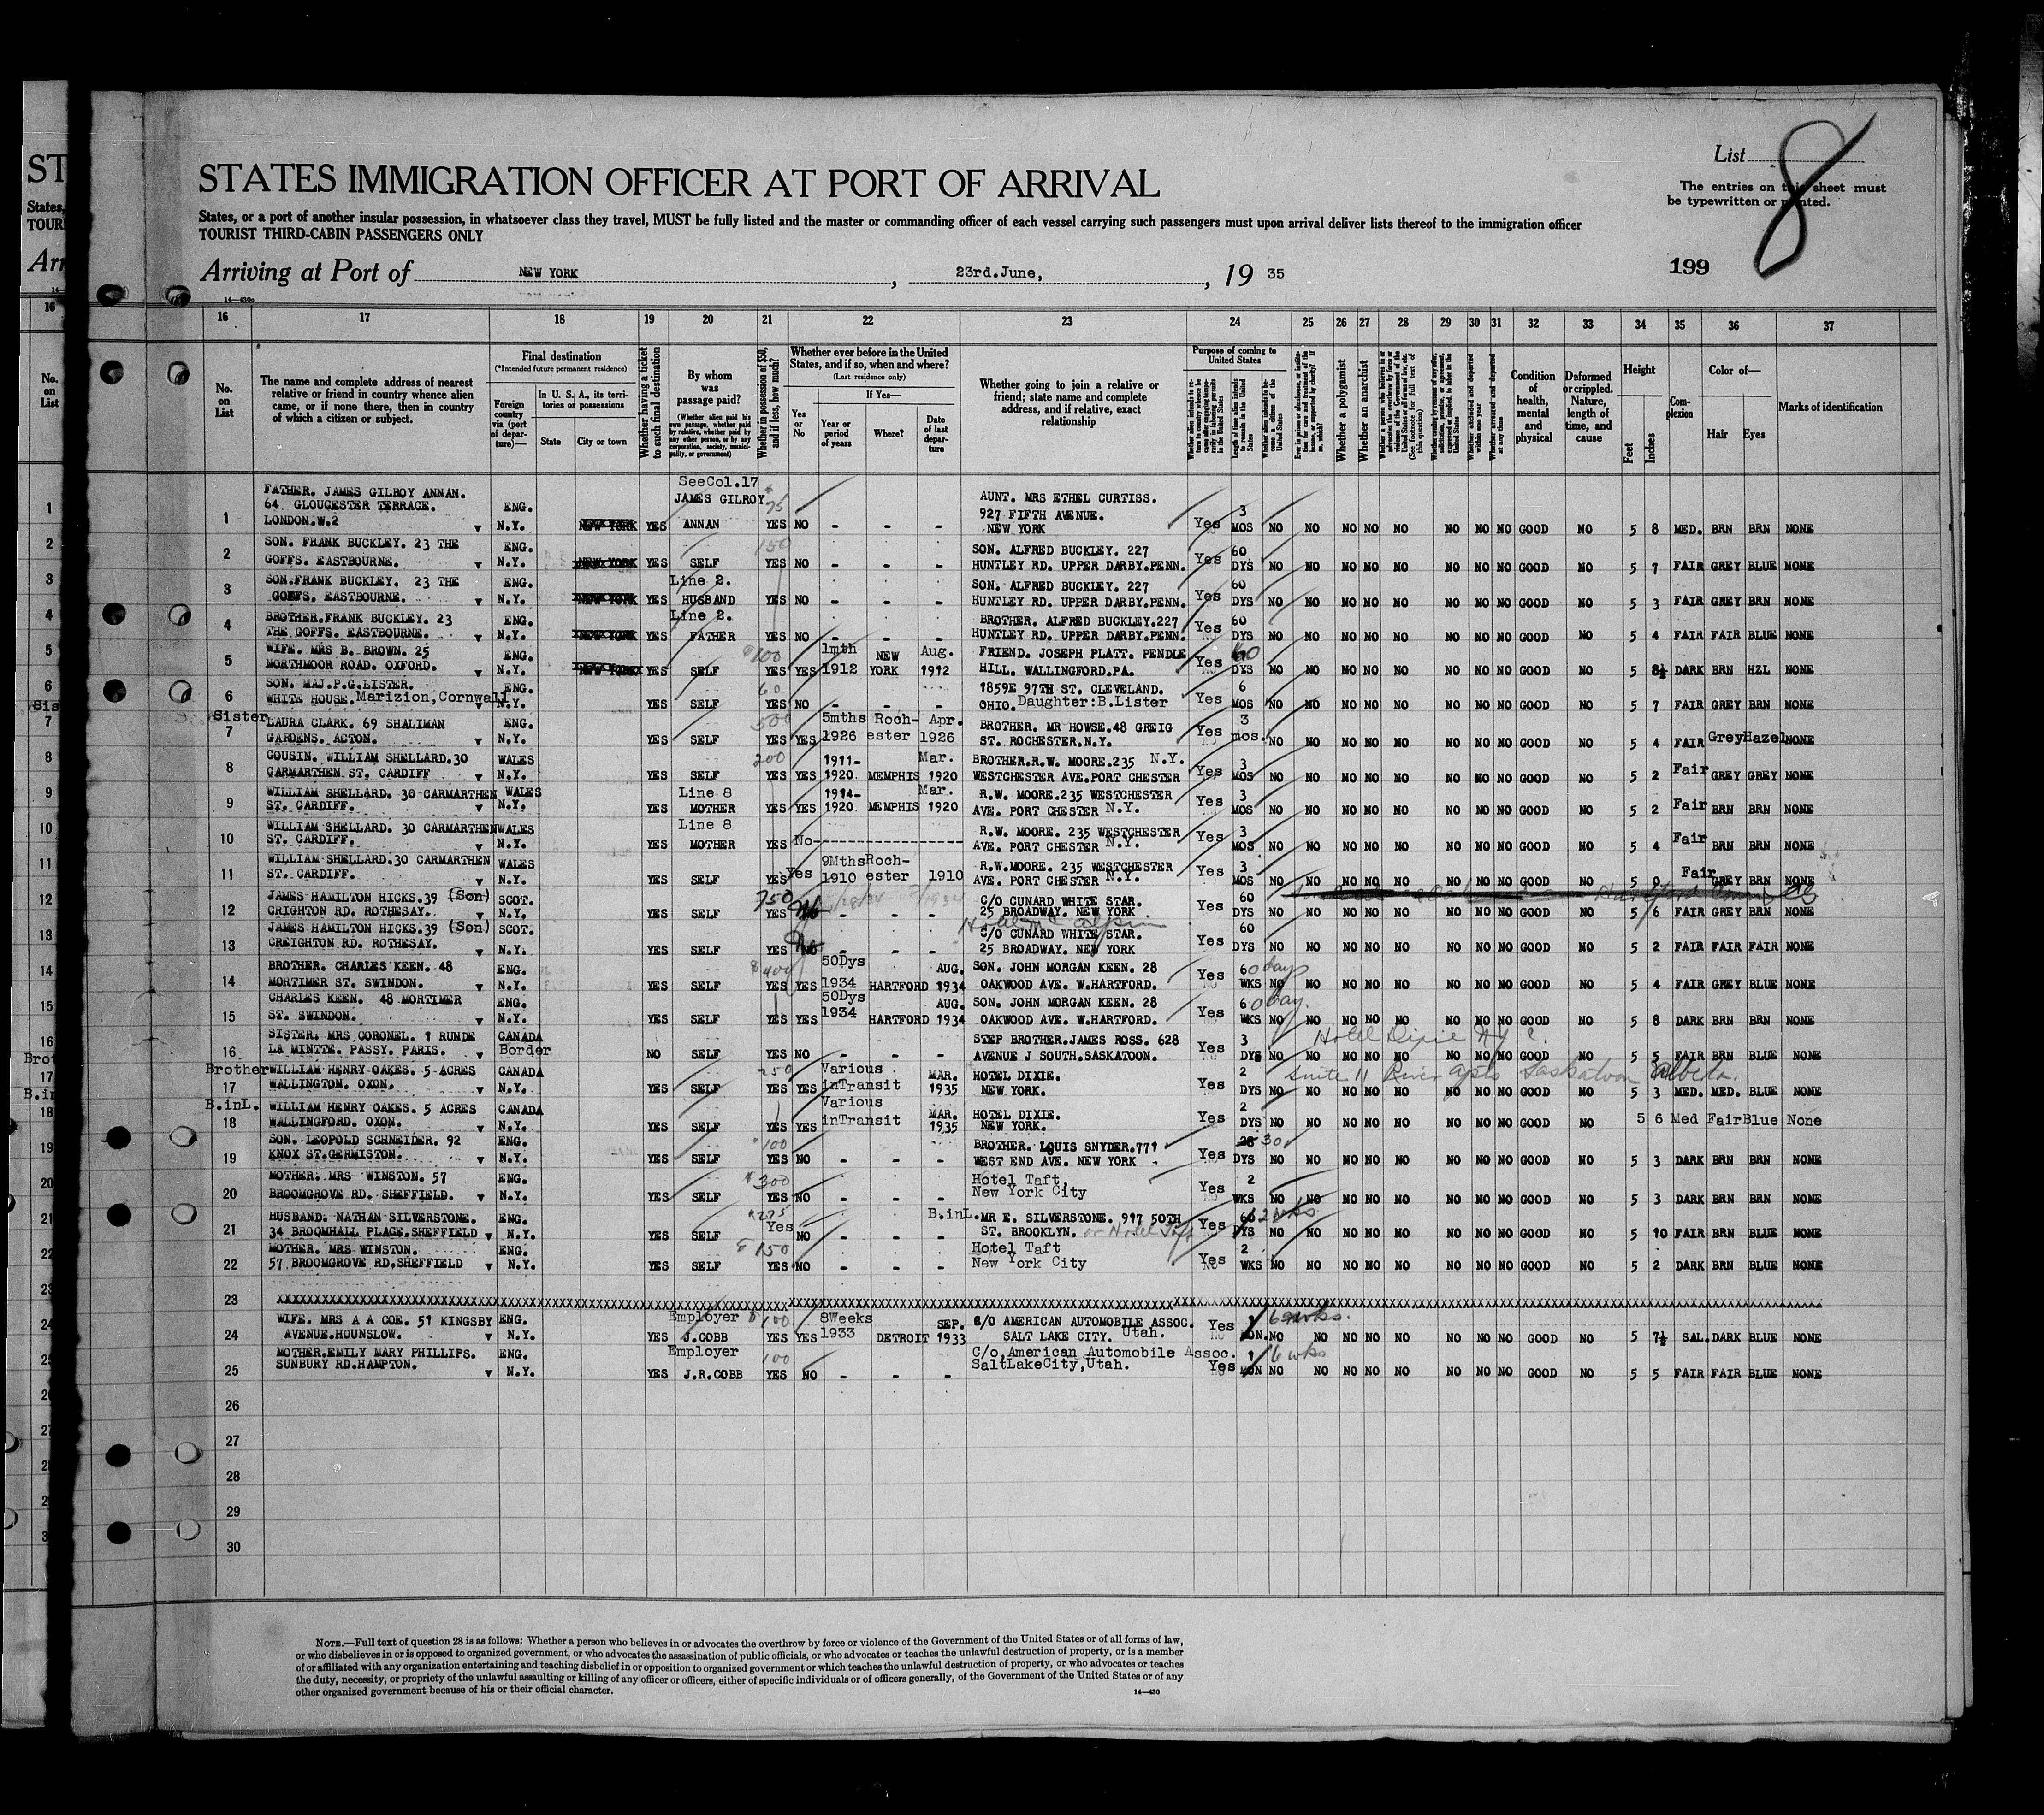 List 8
The entries on this sheet must
be typewritten or printed.
STATES IMMIGRATION OFFICER AT PORT OF ARRIVAL
States, or a port of another insular possession, in whatsoever class they travel, MUST be fully listed and the master or commanding officer of each vessel carrying such passengers must upon arrival deliver lists thereof to the immigration officer
TOURIST THIRD-CABIN PASSENGERS ONLY
Arriving at Port of NEW YORK, 23rd.June, 19 35
199
14—430a
16 17 18 19 20 21 22 23 24 25 26 27 28 29 30 31 32 33 34 35 36 37
No. on List
The name and complete address of nearest relative or friend in country whence alien came, or if none there, then in country of which a citizen or subject.
Final destination
(*Intended future permanent residence)
Foreign country via (port of departure)—
In U. S. A., its territories of possessions
State City or town
Whether having a ticket to such final destination
By whom was passage paid?
(Whether alien paid his own passage, whether paid by relative, whether paid by any other person, or by any corporation, society, municipality, or government)
Whether in possession of $50, and if less, how much?
Whether ever before in the United States, and if so, when and where?
(Last residence only)
Yes or No
If Yes—
Year or period of years Where? Date of last departure
Whether going to join a relative or friend; state name and complete address, and if relative, exact relationship
Purpose of coming to United States
Length of time alien intends to remain in the United States
Whether a polygamist
Whether an anarchist
Condition of health, mental and physical
Deformed or crippled. Nature, length of time, and cause
Height
Feet Inches
Complexion
Color of—
Hair Eyes
Marks of identification
1 FATHER. JAMES GILROY ANNAN. 64 GLOUCESTER TERRACE. LONDON.W.2 ENG. N.Y. NEW YORK YES SeeCol.17 JAMES GILROY ANNAN 75 YES NO - - - AUNT. MRS ETHEL CURTISS. 927 FIFTH AVENUE. NEW YORK Yes 3 MOS NO NO NO NO NO NO NO NO GOOD NO 5 8 MED. BRN BRN NONE
2 SON. FRANK BUCKLEY. 23 THE GOFFS. EASTBOURNE. ENG. N.Y. NEW YORK YES SELF 150 YES NO - - - SON. ALFRED BUCKLEY. 227 HUNTLEY RD. UPPER DARBY.PENN. Yes 60 DYS NO NO NO NO NO NO NO NO GOOD NO 5 7 FAIR GREY BLUE NONE
3 SON.FRANK BUCKLEY. 23 THE GOFFS. EASTBOURNE. ENG. N.Y. NEW YORK YES Line 2. HUSBAND YES NO - - - SON. ALFRED BUCKLEY. 227 HUNTLEY RD. UPPER DARBY.PENN. Yes 60 DYS NO NO NO NO NO NO NO NO GOOD NO 5 3 FAIR GREY BRN NONE
4 BROTHER.FRANK BUCKLEY. 23 THE GOFFS. EASTBOURNE. ENG. N.Y. NEW YORK YES Line 2. FATHER YES NO - - - BROTHER. ALFRED BUCKLEY.227 HUNTLEY RD. UPPER DARBY.PENN. Yes 60 DYS NO NO NO NO NO NO NO NO GOOD NO 5 4 FAIR FAIR BLUE NONE
5 WIFE. MRS B. BROWN. 25 NORTHMOOR ROAD. OXFORD. ENG. N.Y. NEW YORK YES SELF $100 YES YES 1mth 1912 NEW YORK Aug. 1912 FRIEND. JOSEPH PLATT. PENDLE HILL. WALLINGFORD.PA. Yes 60 DYS NO NO NO NO NO NO NO NO GOOD NO 5 8½ DARK BRN HZL NONE
6 SON. MAJ.P.G.LISTER. WHITE HOUSE.Marizion,Cornwall ENG. N.Y. YES SELF 60 YES NO - - - 1859E 97TH ST. CLEVELAND. OHIO.Daughter:B.Lister Yes 6 MOS NO NO NO NO NO NO NO NO GOOD NO 5 7 FAIR GREY BRN NONE
7 Sister LAURA CLARK. 69 SHALIMAN GARDENS. ACTON. ENG. N.Y. YES SELF 500 YES YES 5mths 1926 Rochester Apr. 1926 BROTHER. MR HOWSE.48 GREIG ST. ROCHESTER.N.Y. Yes 3 mos. NO NO NO NO NO NO NO NO GOOD NO 5 4 FAIR Grey Hazel NONE
8 COUSIN. WILLIAM SHELLARD.30 CARMARTHEN ST. CARDIFF WALES N.Y. YES SELF 200 YES YES 1911-1920 MEMPHIS Mar. 1920 BROTHER.R.W. MOORE.235 N.Y. WESTCHESTER AVE.PORT CHESTER Yes 3 MOS NO NO NO NO NO NO NO NO GOOD NO 5 2 Fair GREY GREY NONE
9 WILLIAM SHELLARD. 30 CARMARTHEN ST. CARDIFF. WALES N.Y. YES Line 8 MOTHER YES YES 1914-1920 MEMPHIS Mar. 1920 R.W. MOORE.235 WESTCHESTER AVE. PORT CHESTER N.Y. Yes 3 MOS NO NO NO NO NO NO NO NO GOOD NO 5 2 Fair BRN BRN NONE
10 WILLIAM SHELLARD. 30 CARMARTHEN ST. CARDIFF. WALES N.Y. YES Line 8 MOTHER YES No R.W. MOORE. 235 WESTCHESTER AVE. PORT CHESTER N.Y. Yes 3 MOS NO NO NO NO NO NO NO NO GOOD NO 5 4 Fair BRN BRN NONE
11 WILLIAM SHELLARD.30 CARMARTHEN ST. CARDIFF. WALES N.Y. YES SELF YES Yes 9Mths 1910 Rochester 1910 R.W.MOORE. 235 WESTCHESTER AVE. PORT CHESTER N.Y. Yes 3 MOS NO NO NO NO NO NO NO NO GOOD NO 5 0 Fair GREY BRN NONE
12 JAMES HAMILTON HICKS.39 (Son) CRIGHTON RD. ROTHESAY. SCOT. N.Y. YES SELF 750 YES - - - C/O CUNARD WHITE STAR. 25 BROADWAY. NEW YORK Yes 60 DYS NO NO NO NO NO NO NO NO GOOD NO 5 6 FAIR GREY BRN NONE
13 JAMES HAMILTON HICKS.39 (Son) CREIGHTON RD. ROTHESAY. SCOT. N.Y. YES SELF YES No - - - C/O CUNARD WHITE STAR. 25 BROADWAY. NEW YORK Yes 60 DYS NO NO NO NO NO NO NO NO GOOD NO 5 2 FAIR FAIR FAIR NONE
14 BROTHER. CHARLES KEEN. 48 MORTIMER ST. SWINDON. ENG. N.Y. YES SELF $400 YES YES 50Dys 1934 HARTFORD AUG. 1934 SON. JOHN MORGAN KEEN. 28 OAKWOOD AVE. W.HARTFORD. Yes 60 days WKS NO NO NO NO NO NO NO NO GOOD NO 5 4 FAIR GREY BLUE NONE
15 CHARLES KEEN. 48 MORTIMER ST. SWINDON. ENG. N.Y. YES SELF YES YES 50Dys 1934 HARTFORD AUG. 1934 SON. JOHN MORGAN KEEN. 28 OAKWOOD AVE. W.HARTFORD. Yes 60 day. WKS NO NO NO NO NO NO NO NO GOOD NO 5 8 DARK BRN BRN NONE
16 SISTER. MRS CORONEL. 1 RUNDE LA MINTTE. PASSY. PARIS. CANADA Border NO SELF YES NO - - - STEP BROTHER.JAMES ROSS. 628 AVENUE J SOUTH.SASKATOON. Yes 3 DYS NO NO NO NO NO NO NO NO GOOD NO 5 5 FAIR BRN BLUE NONE
Hotel Dixie N.Y.C.
17 Brother WILLIAM HENRY OAKES. 5 ACRES WALLINGTON. OXON. CANADA N.Y. YES SELF 250 YES YES Various inTransit MAR. 1935 HOTEL DIXIE. NEW YORK. Yes 2 DYS NO NO NO NO NO NO NO NO GOOD NO 5 3 MED. MED. BLUE NONE
Suite 11 River Apts Saskatoon Alberta.
18 B.inL. WILLIAM HENRY OAKES. 5 ACRES WALLINGFORD. OXON. CANADA N.Y. YES SELF YES YES Various inTransit MAR. 1935 HOTEL DIXIE. NEW YORK. Yes 2 DYS NO NO NO NO NO NO NO NO GOOD NO 5 6 Med Fair Blue None
19 SON. LEOPOLD SCHNEIDER. 92 KNOX ST.GERMISTON. ENG. N.Y. YES SELF $100 YES NO - - - BROTHER. LOUIS SNYDER.771 WEST END AVE. NEW YORK Yes 28 30 DYS NO NO NO NO NO NO NO NO GOOD NO 5 3 DARK BRN BRN NONE
20 MOTHER. MRS WINSTON. 57 BROOMGROVE RD. SHEFFIELD. ENG. N.Y. YES SELF $300 YES NO - - - Hotel Taft, New York City Yes 2 WKS NO NO NO NO NO NO NO NO GOOD NO 5 3 DARK BRN BRN NONE
21 HUSBAND. NATHAN SILVERSTONE. 34 BROOMHALL PLACE.SHEFFIELD ENG. N.Y. YES SELF $275 Yes NO - - - B.inL. MR E. SILVERSTONE. 917 50TH ST. BROOKLYN. or Hotel Taft Yes 60 2 wks DYS NO NO NO NO NO NO NO NO GOOD NO 5 10 FAIR BRN BLUE NONE
22 MOTHER. MRS WINSTON. 57 BROOMGROVE RD.SHEFFIELD ENG. N.Y. YES SELF 150 YES NO - - - Hotel Taft New York City Yes 2 WKS NO NO NO NO NO NO NO NO GOOD NO 5 2 DARK BRN BLUE NONE
23
24 WIFE. MRS A A COE. 51 KINGSBY AVENUE.HOUNSLOW. ENG. N.Y. YES Employer J.COBB $100 YES YES 8Weeks 1933 DETROIT SEP. 1933 C/O AMERICAN AUTOMOBILE ASSOC. SALT LAKE CITY. Utah. Yes 1 6 wks. MON. NO NO NO NO NO NO NO NO GOOD NO 5 7½ SAL. DARK BLUE NONE
25 MOTHER.EMILY MARY PHILLIPS. SUNBURY RD.HAMPTON. ENG. N.Y. YES Employer J.R.COBB 100 YES NO - - - C/o,American Automobile Assoc. SaltLakeCity,Utah. Yes 1 6 wks MON NO NO NO NO NO NO NO NO GOOD NO 5 5 FAIR FAIR BLUE NONE
26
27
28
29
30
NOTE.—Full text of question 28 is as follows: Whether a person who believes in or advocates the overthrow by force or violence of the Government of the United States or of all forms of law,
or who disbelieves in or is opposed to organized government, or who advocates the assassination of public officials, or who advocates or teaches the unlawful destruction of property, or is a member
of or affiliated with any organization entertaining and teaching disbelief in or opposition to organized government or which teaches the unlawful destruction of property, or who advocates or teaches
the duty, necessity, or propriety of the unlawful assaulting or killing of any officer or officers, either of specific individuals or of officers generally, of the Government of the United States or of any
other organized government because of his or their official character.
14—430